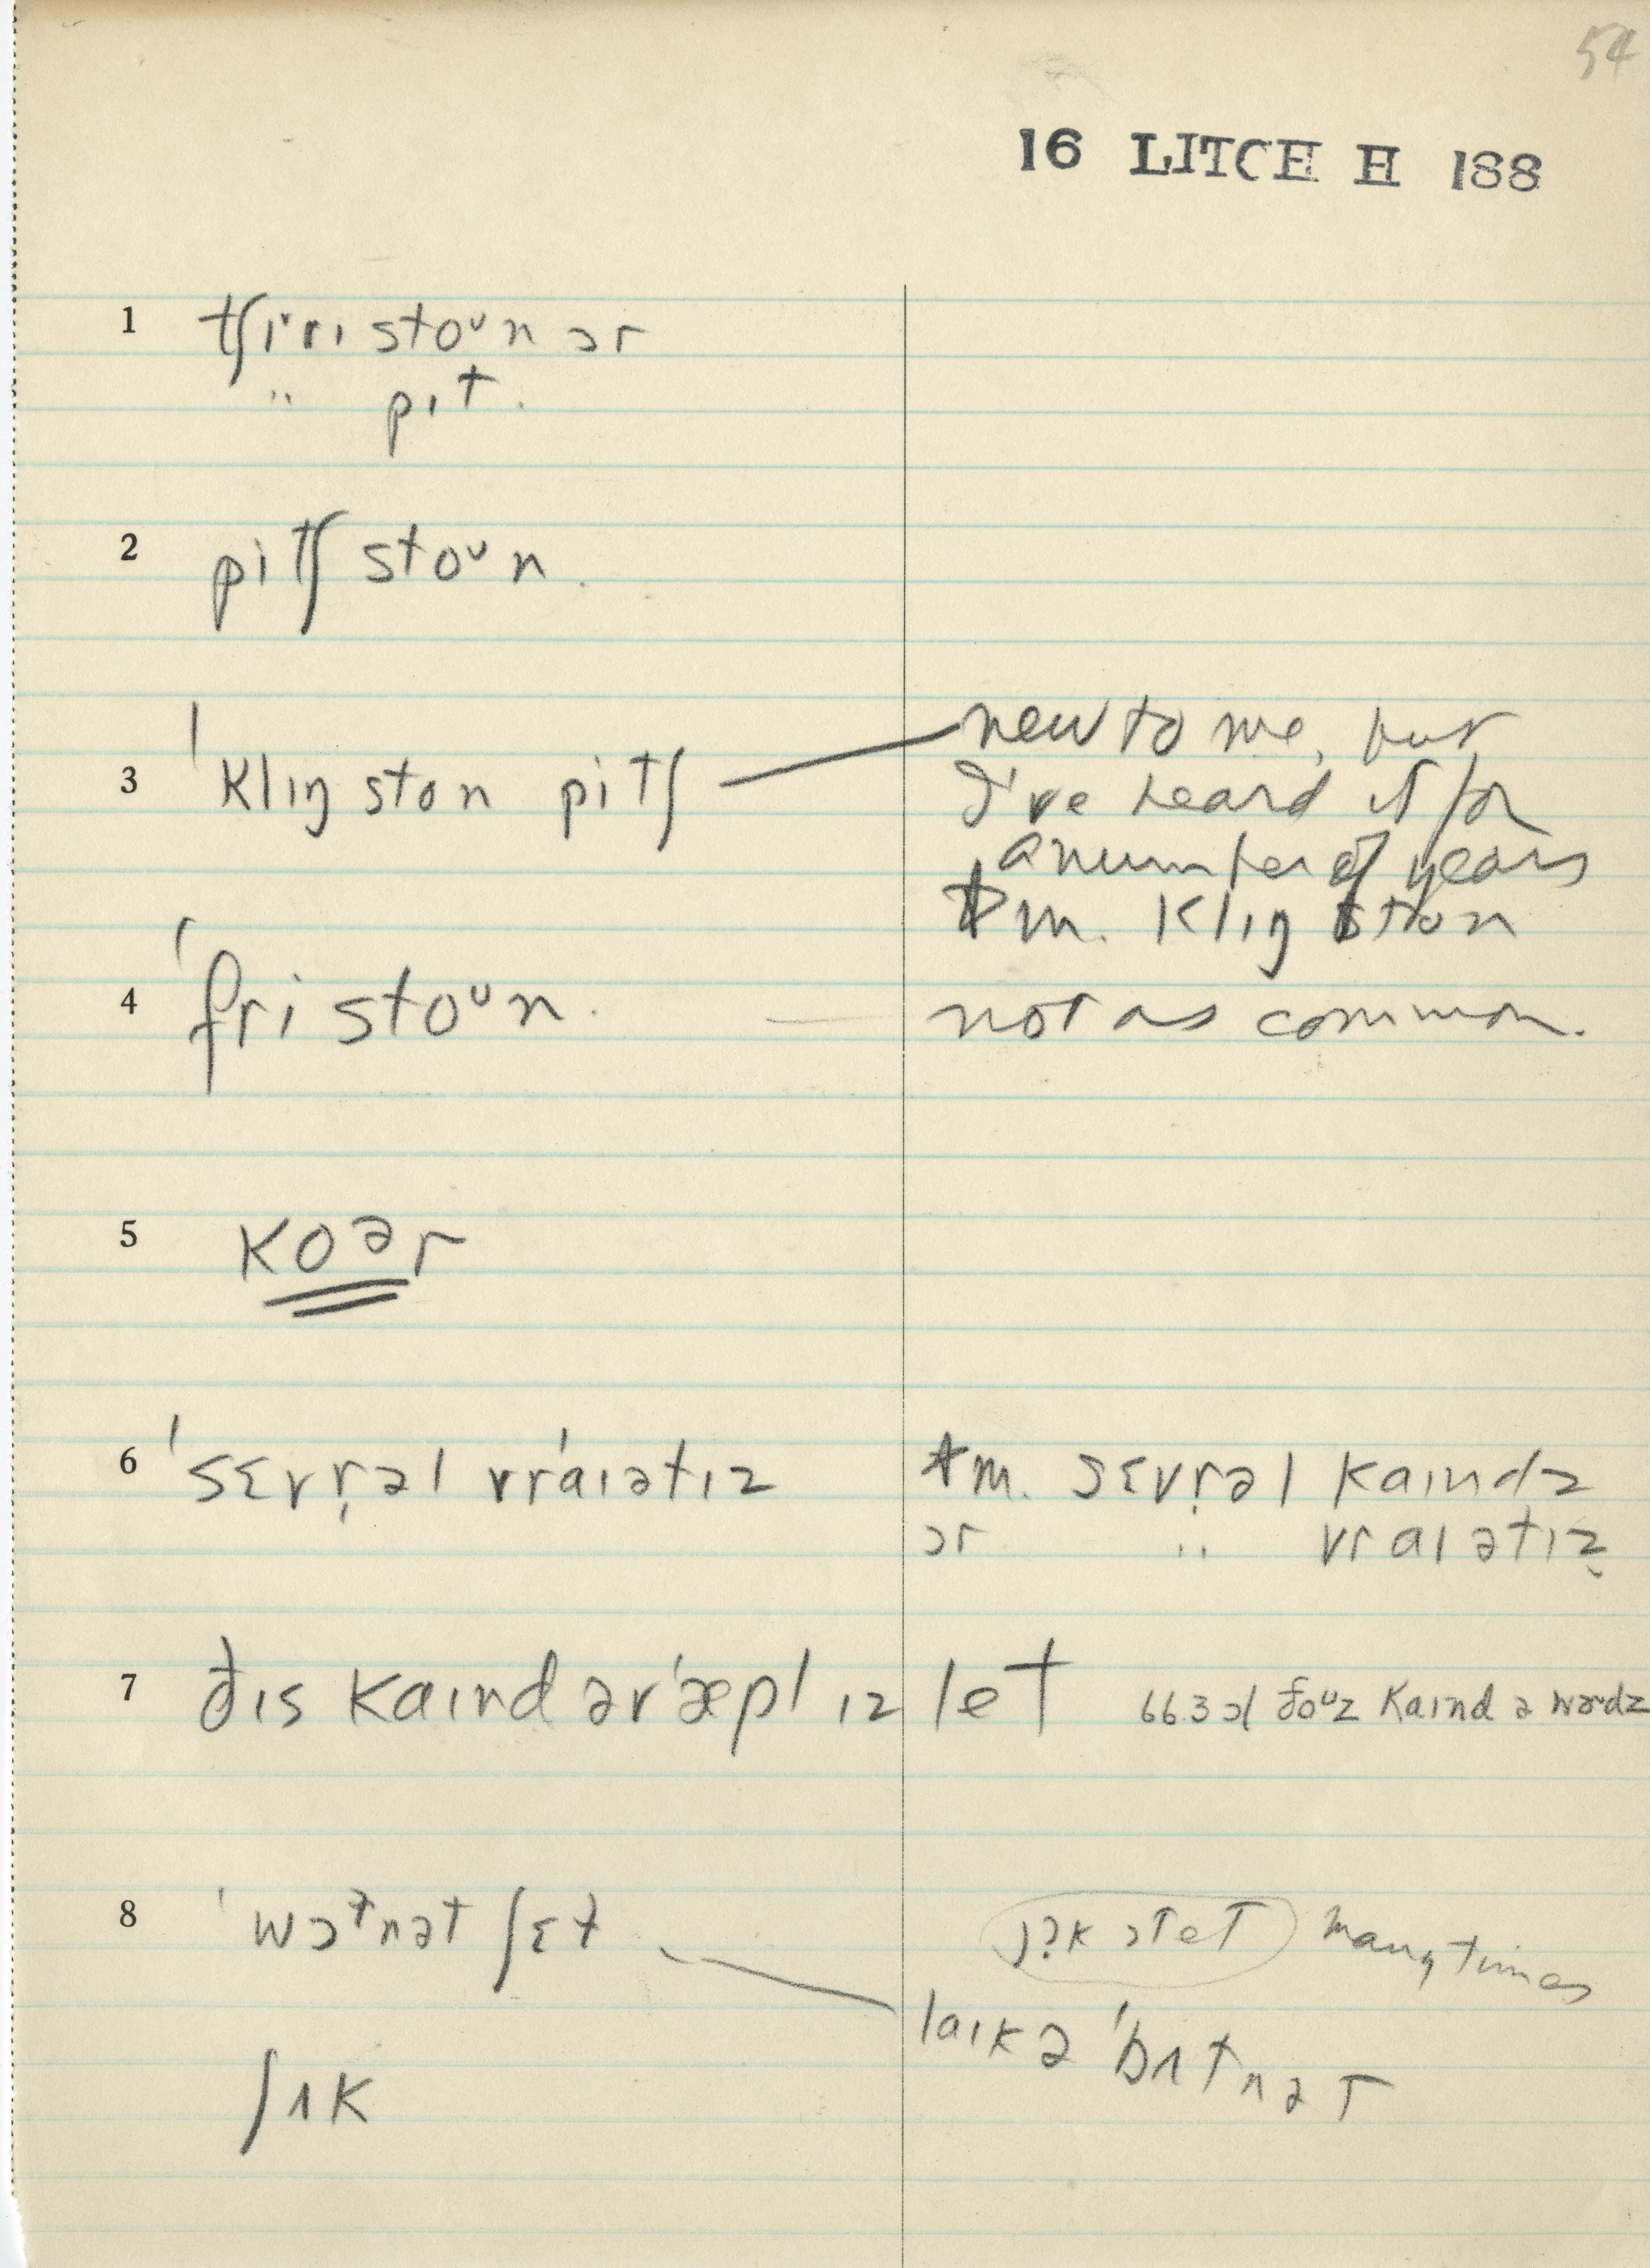 54
16 LITCH H 188
1 tʃɪˇrɪ stoᵘn ɔr
" pɪt.
2 pitʃ stoᵘn.
3 ˈklɪŋ ston pitʃ — new to me, but
I've heard it for
a number of years
m. klɪŋ ston
4 ˈfri stoᵘn. — not as common.
5 koᵊr
6 ˈsɛvr̩əl vrˈaɪətɪz m. sɛvr̩əl kaɪndz
ɔr " vraɪətɪz
7 ðɪs kaɪnd ərˈæpl ɪz let 66.3 ɔl ðoᵘz kaɪnd ə wɚdz
8 ˈwɔᵗnət ʃɛt many times
laɪk ə ˈbʌtnət
ʃʌk